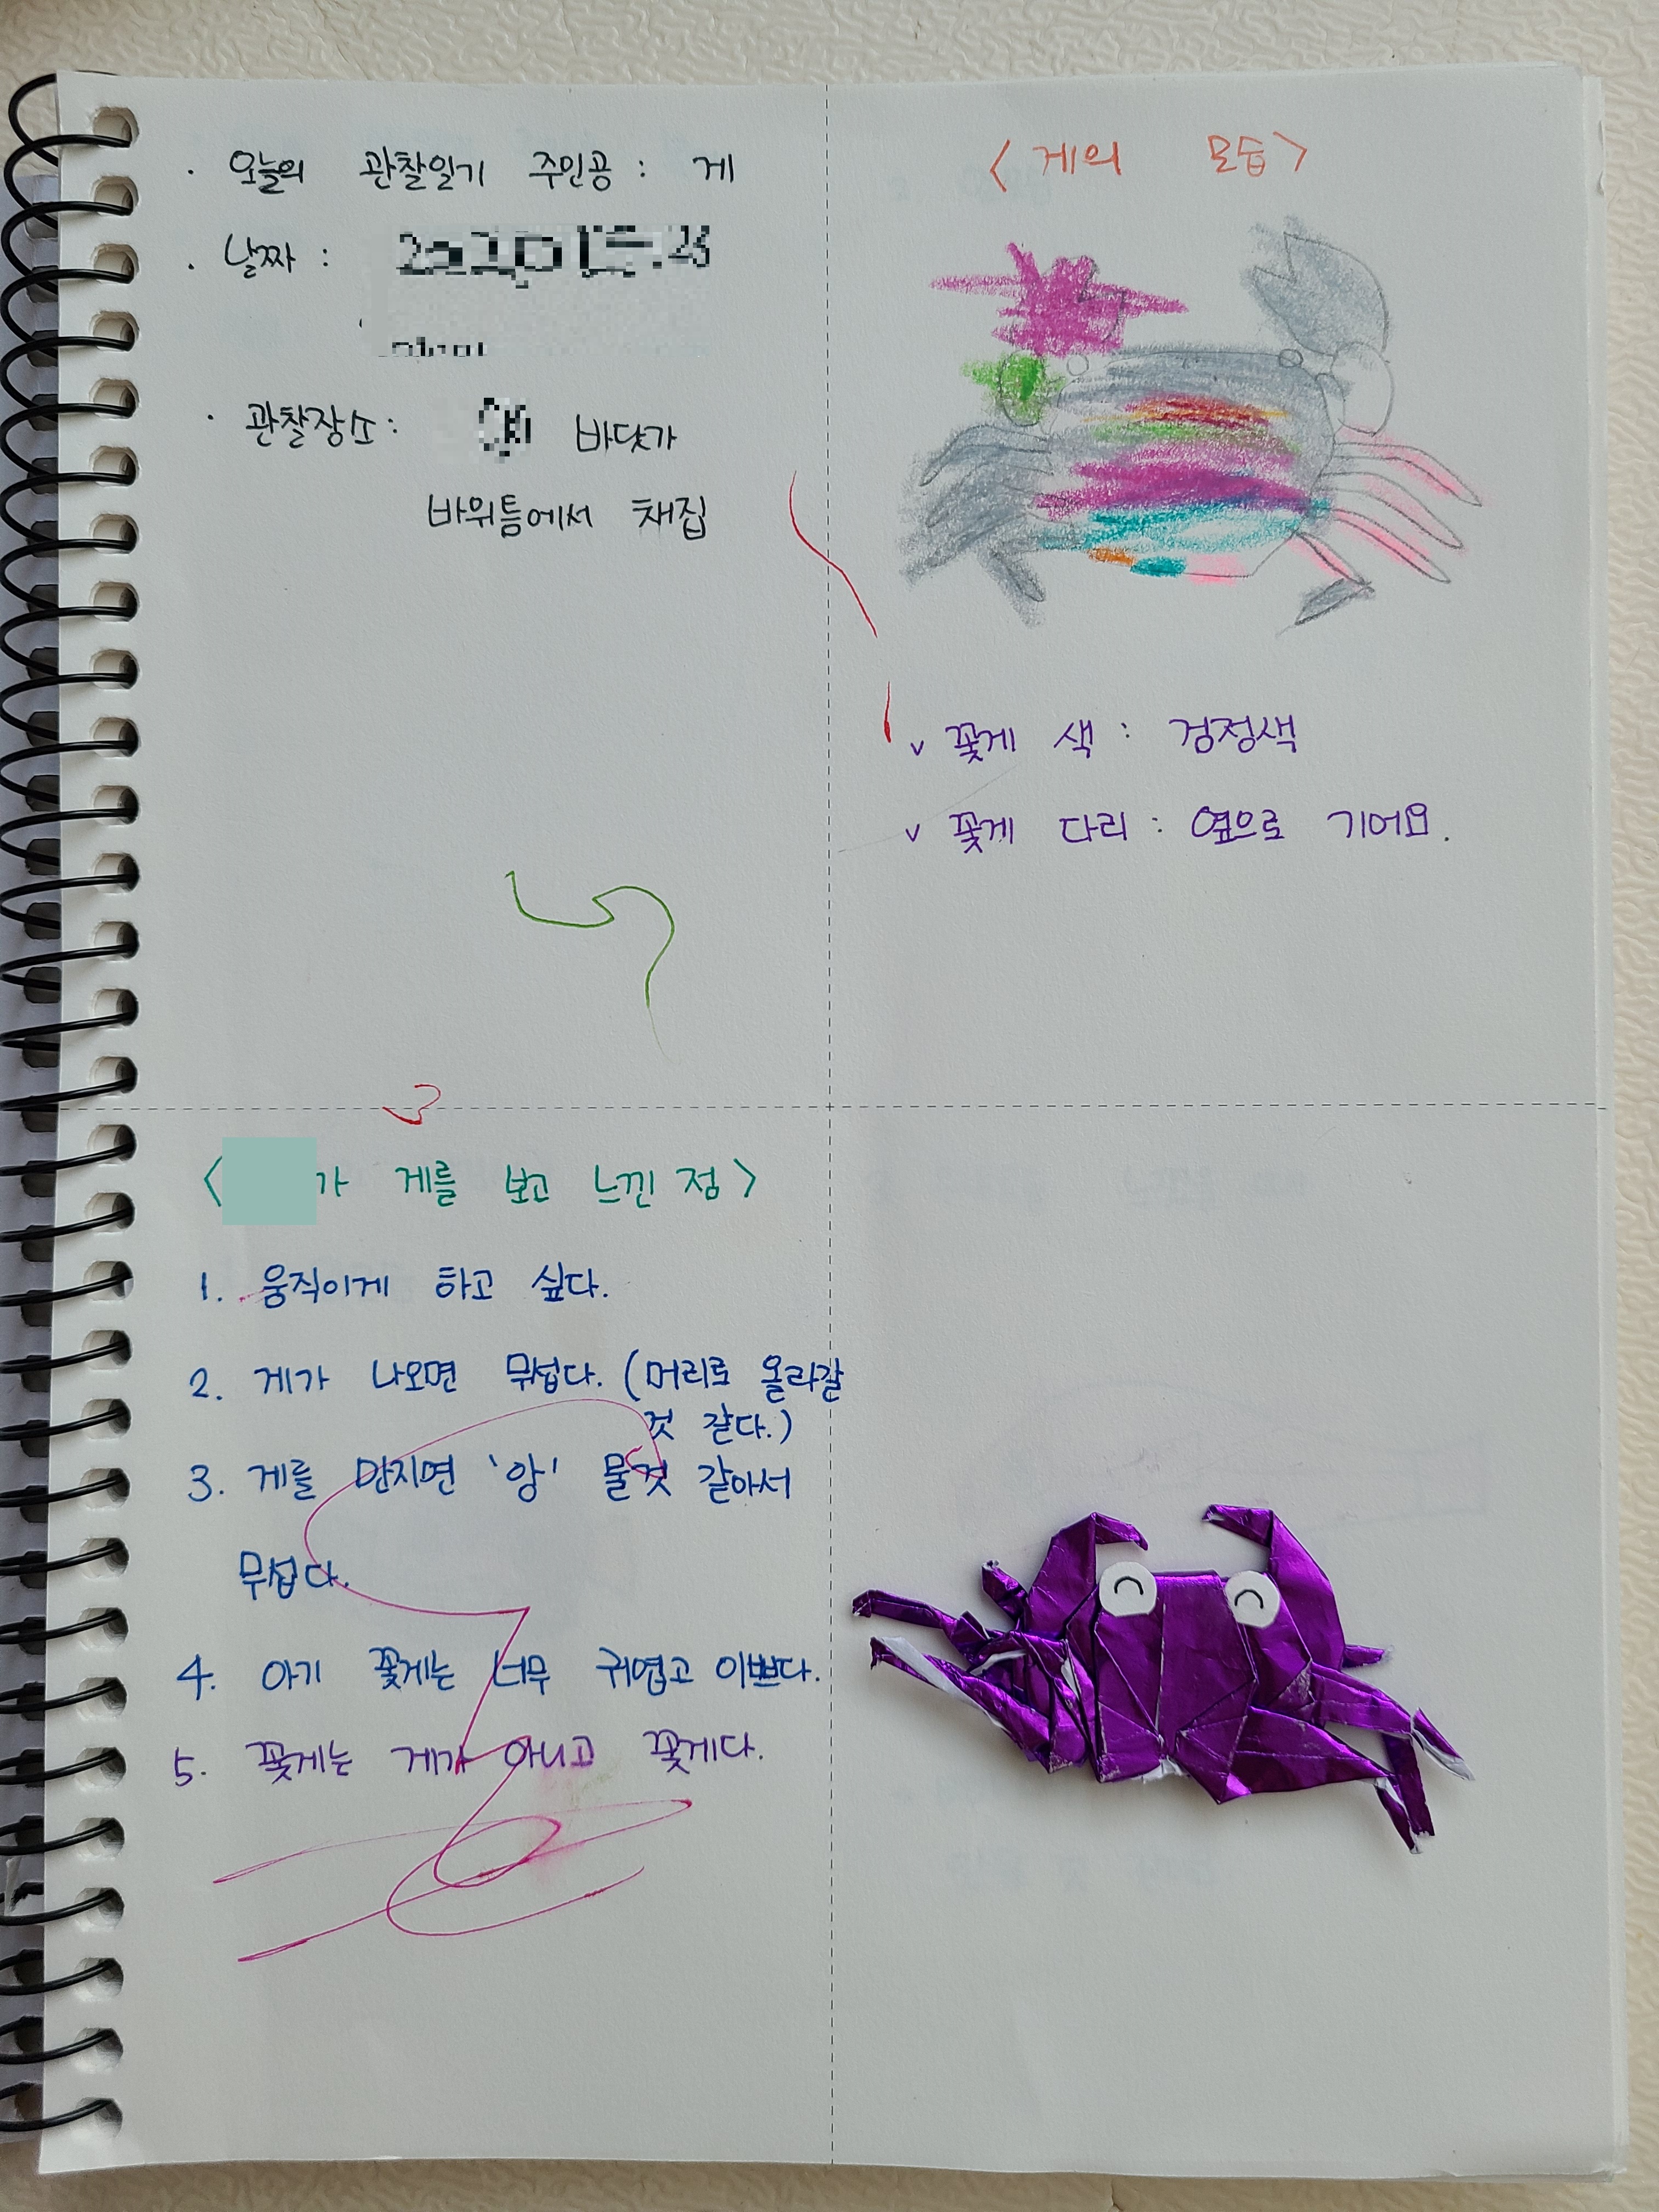 · 오늘의 관찰일기 주인공 : 게
· 날짜 :
· 관찰장소 : 바닷가
바위틈에서 채집
<게의 모습>
v 꽃게 색 : 검정색
v 꽃게 다리 : 옆으로 기어요.
< 가 게를 보고 느낀 점>
1. 움직이게 하고 싶다.
2. 게가 나오면 무섭다. (머리로 올라갈
것 같다.)
3. 게를 만지면 '앙' 물것 같아서
무섭다.
4. 아기 꽃게는 너무 귀엽고 이쁘다.
5. 꽃게는 게가 아니고 꽃게다.